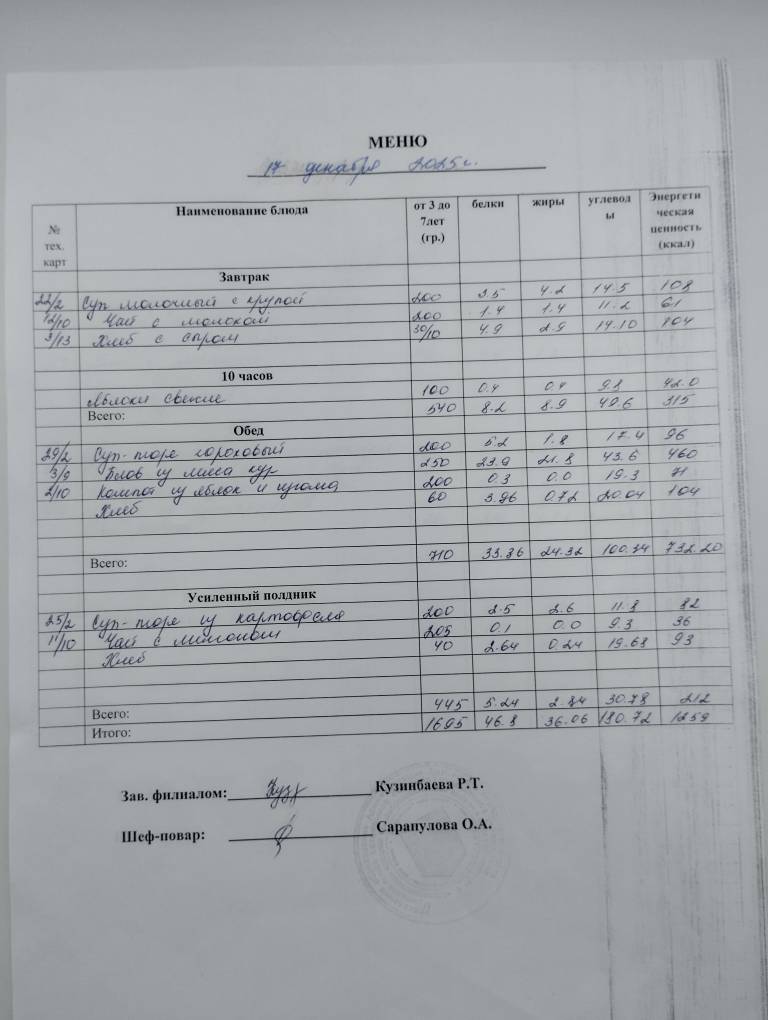 МЕНЮ
17 декабря 2025г.
№ тех. карт Наименование блюда от 3 до 7лет (гр.) белки жиры углеводы Энергетическая ценность (ккал)
Завтрак
22/2 Суп молочный с крупой 200 3.5 4.2 14.5 108
12/10 Чай с молоком 200 1.4 1.4 11.2 61
3/13 Хлеб с сыром 30/10 4.9 2.9 14.10 104
10 часов
Яблоки свежие 100 0.4 0.4 9.8 42.0
Всего: 540 8.2 8.9 49.6 315
Обед
29/2 Суп-пюре гороховый 200 5.2 1.8 17.4 96
3/9 Плов из мяса кур 250 23.9 21.8 43.6 460
2/10 Компот из яблок и изюма 200 0.3 0.0 19.3 71
Хлеб 60 3.96 0.72 20.04 104
Всего: 710 33.36 24.32 100.34 732.20
Усиленный полдник
25/2 Суп-пюре из картофеля 200 2.5 2.6 11.8 82
11/10 Чай с лимоном 205 0.1 0.0 9.3 36
Хлеб 40 2.64 0.24 19.68 93
Всего: 445 5.24 2.84 30.78 212
Итого: 1695 46.8 36.06 180.72 1259
Зав. филиалом: Кузинбаева Р.Т.
Шеф-повар: Сарапулова О.А.